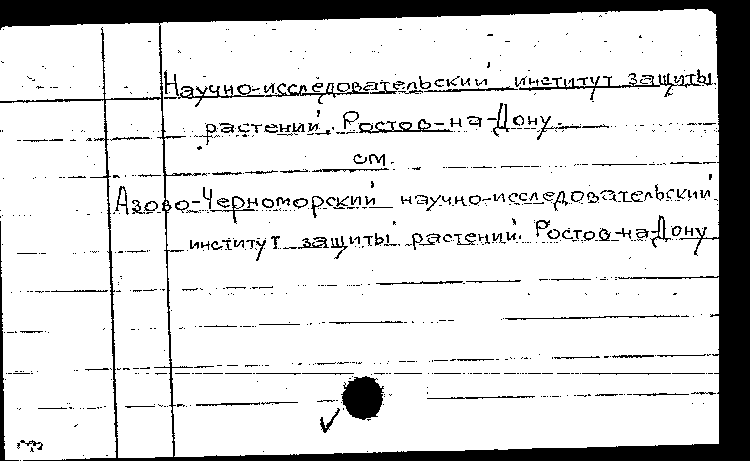 Научно-исследовательский институт защиты
растений. Ростов-на-Дону.
см.
Азово-Черноморский научно-исследовательский
институт защиты растений. Ростов-на-Дону